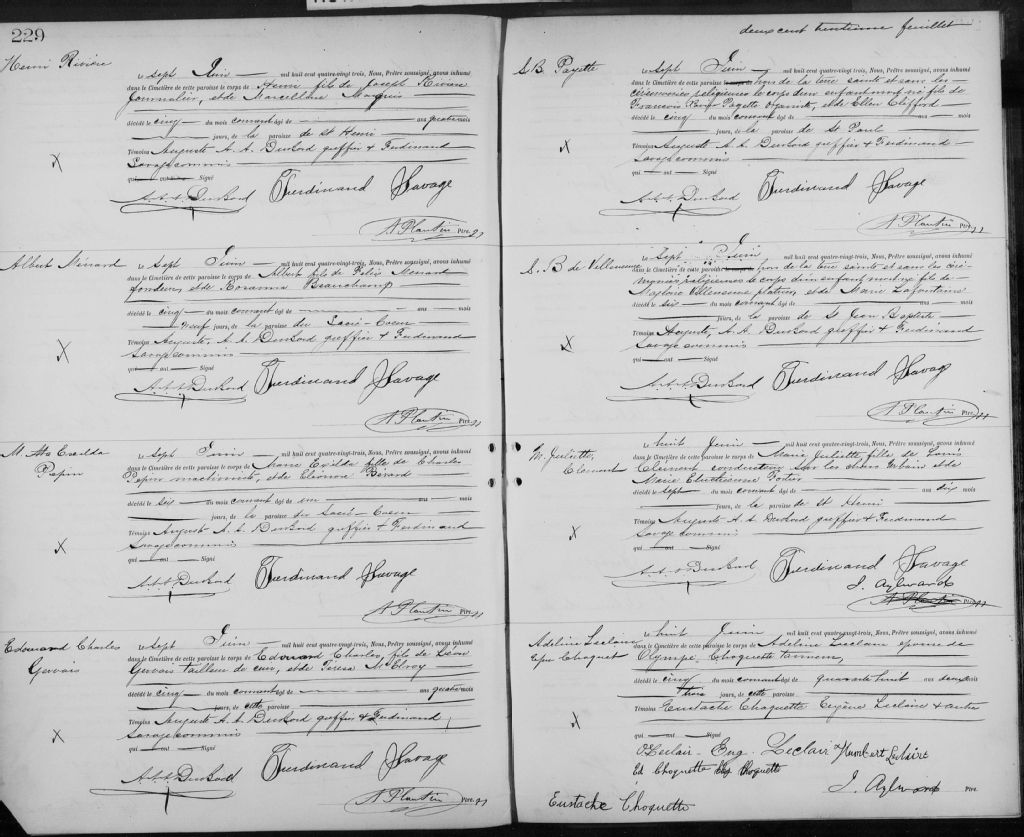 229
Henri Riviere
Le sept Juin mil huit cent quatre-vingt trois, Nous, Prêtre soussigné, avons inhumé
dans le Cimetière de cette paroisse le corps de Henri fils de Joseph Riviere
journalier, et de Marcelline Marquis
décédé le cinq du mois courant âgé de ans quatre mois
jours, de la paroisse de St Henri
Témoins Auguste A. A. DuBord greffier & Ferdinand
Savage commis
qui ont Signé
A. A. A. DuBord Ferdinand Savage
A Plantin Ptre.
Albert Ménard
Le sept Juin mil huit cent quatre-vingt-trois, Nous, Prêtre soussigné, avons inhumé
dans le Cimetière de cette paroisse le corps de Albert fils de Felix Menard
fondeur, et de Rosanna Beauchamp
décédé le cinq du mois courant âgé de ans mois
neuf jours, de la paroisse du Sacré-Coeur
Témoins Auguste A. A. DuBord greffier & Ferdinand
Savage commis
qui ont Signé
A. A. A. DuBord Ferdinand Savage
A Plantin Ptre.
M. Exilda
Pepin
Le sept Juin mil huit cent quatre-vingt-trois, Nous, Prêtre soussigné, avons inhumé
dans le Cimetière de cette paroisse le corps de Marie Exilda fille de Charles
Pepin machiniste, et de Eléonore Bérard
décédé le six du mois courant âgé de un
jours, de la paroisse du Sacré-Coeur
Témoins Auguste A. A. DuBord greffier & Ferdinand
Savage commis
qui ont Signé
A. A. A. DuBord Ferdinand Savage
A Plantin Ptre.
Edouard Charles
Gervais
Le sept Juin mil huit cent quatre-vingt-trois, Nous, Prêtre soussigné, avons inhumé
dans le Cimetière de cette paroisse le corps de Edouard Charles, fils de Léon
Gervais tailleur de cuir, et de Teresa McElroy
décédé le cinq du mois courant âgé de ans quatre mois
jours, de cette paroisse
Témoins Auguste A. A. DuBord greffier & Ferdinand
Savage commis
qui ont Signé
A. A. A. DuBord Ferdinand Savage
A Plantin Ptre.
deux cent trentieme feuillet
S. B. Payette
Le sept Juin mil huit cent quatre-vingt-trois, Nous, Prêtre soussigné, avons inhumé
dans le Cimetière de cette paroisse hors de la terre sainte et sans les
cérémonies religieuses le corps d'un enfant mort né fils de
Francois Payette organiste, et de Ellen Clifford
décédé le cinq du mois courant âgé de ans mois
jours, de la paroisse de St Paul
Témoins Auguste A. A. DuBord greffier & Ferdinand
Savage commis
qui ont Signé
A. A. A. DuBord Ferdinand Savage
A Plantin Ptre.
S. B de Villeneuve
Le Sept Juin
dans le Cimetière de cette paroisse hors de la terre sainte et sans les céré-
monies religieuses le corps d'un enfant mort né fils de
Villeneuve platrier, et de Marie Lafontaine
décédé le six du mois courant âgé de ans mois
jours, de la paroisse de St Jean Baptiste
Témoins Auguste, A. A. DuBord greffier & Ferdinand
Savage commis
qui ont Signé
A. A. A. DuBord Ferdinand Savage
A Plantin Ptre.
M. Juliette
Clement
Le huit Juin mil huit cent quatre-vingt-trois, Nous, Prêtre soussigné, avons inhumé
dans le Cimetière de cette paroisse le corps de Marie Juliette, fille de Louis
Clément conducteur sur les chars urbain et de
Marie Fortier
décédé le sept du mois courant âgé de ans dix mois
jours, de la paroisse de St Henri
Témoins Auguste A. A. DuBord greffier & Ferdinand
Savage commis
qui ont Signé
A. A. A. DuBord Ferdinand Savage
J. Aylward
A Plantin Ptre.
Adeline Leclaire
Choquet
Le huit Juin mil huit cent quatre-vingt-trois, Nous, Prêtre soussigné, avons inhumé
dans le Cimetière de cette paroisse le corps de Adeline Leclaire épouse de
Olympe Choquette tanneur,
décédé le cinq du mois courant âgé de quarante huit ans deux mois
trois jours, de cette paroisse
Témoins Eustache Choquette Eugène Leclaire & autres
qui ont Signé
O Leclair Eug. Leclair Humbert Leclaire
Ed Choquette Choquette
J. Aylward Ptre.
Eustache Choquette